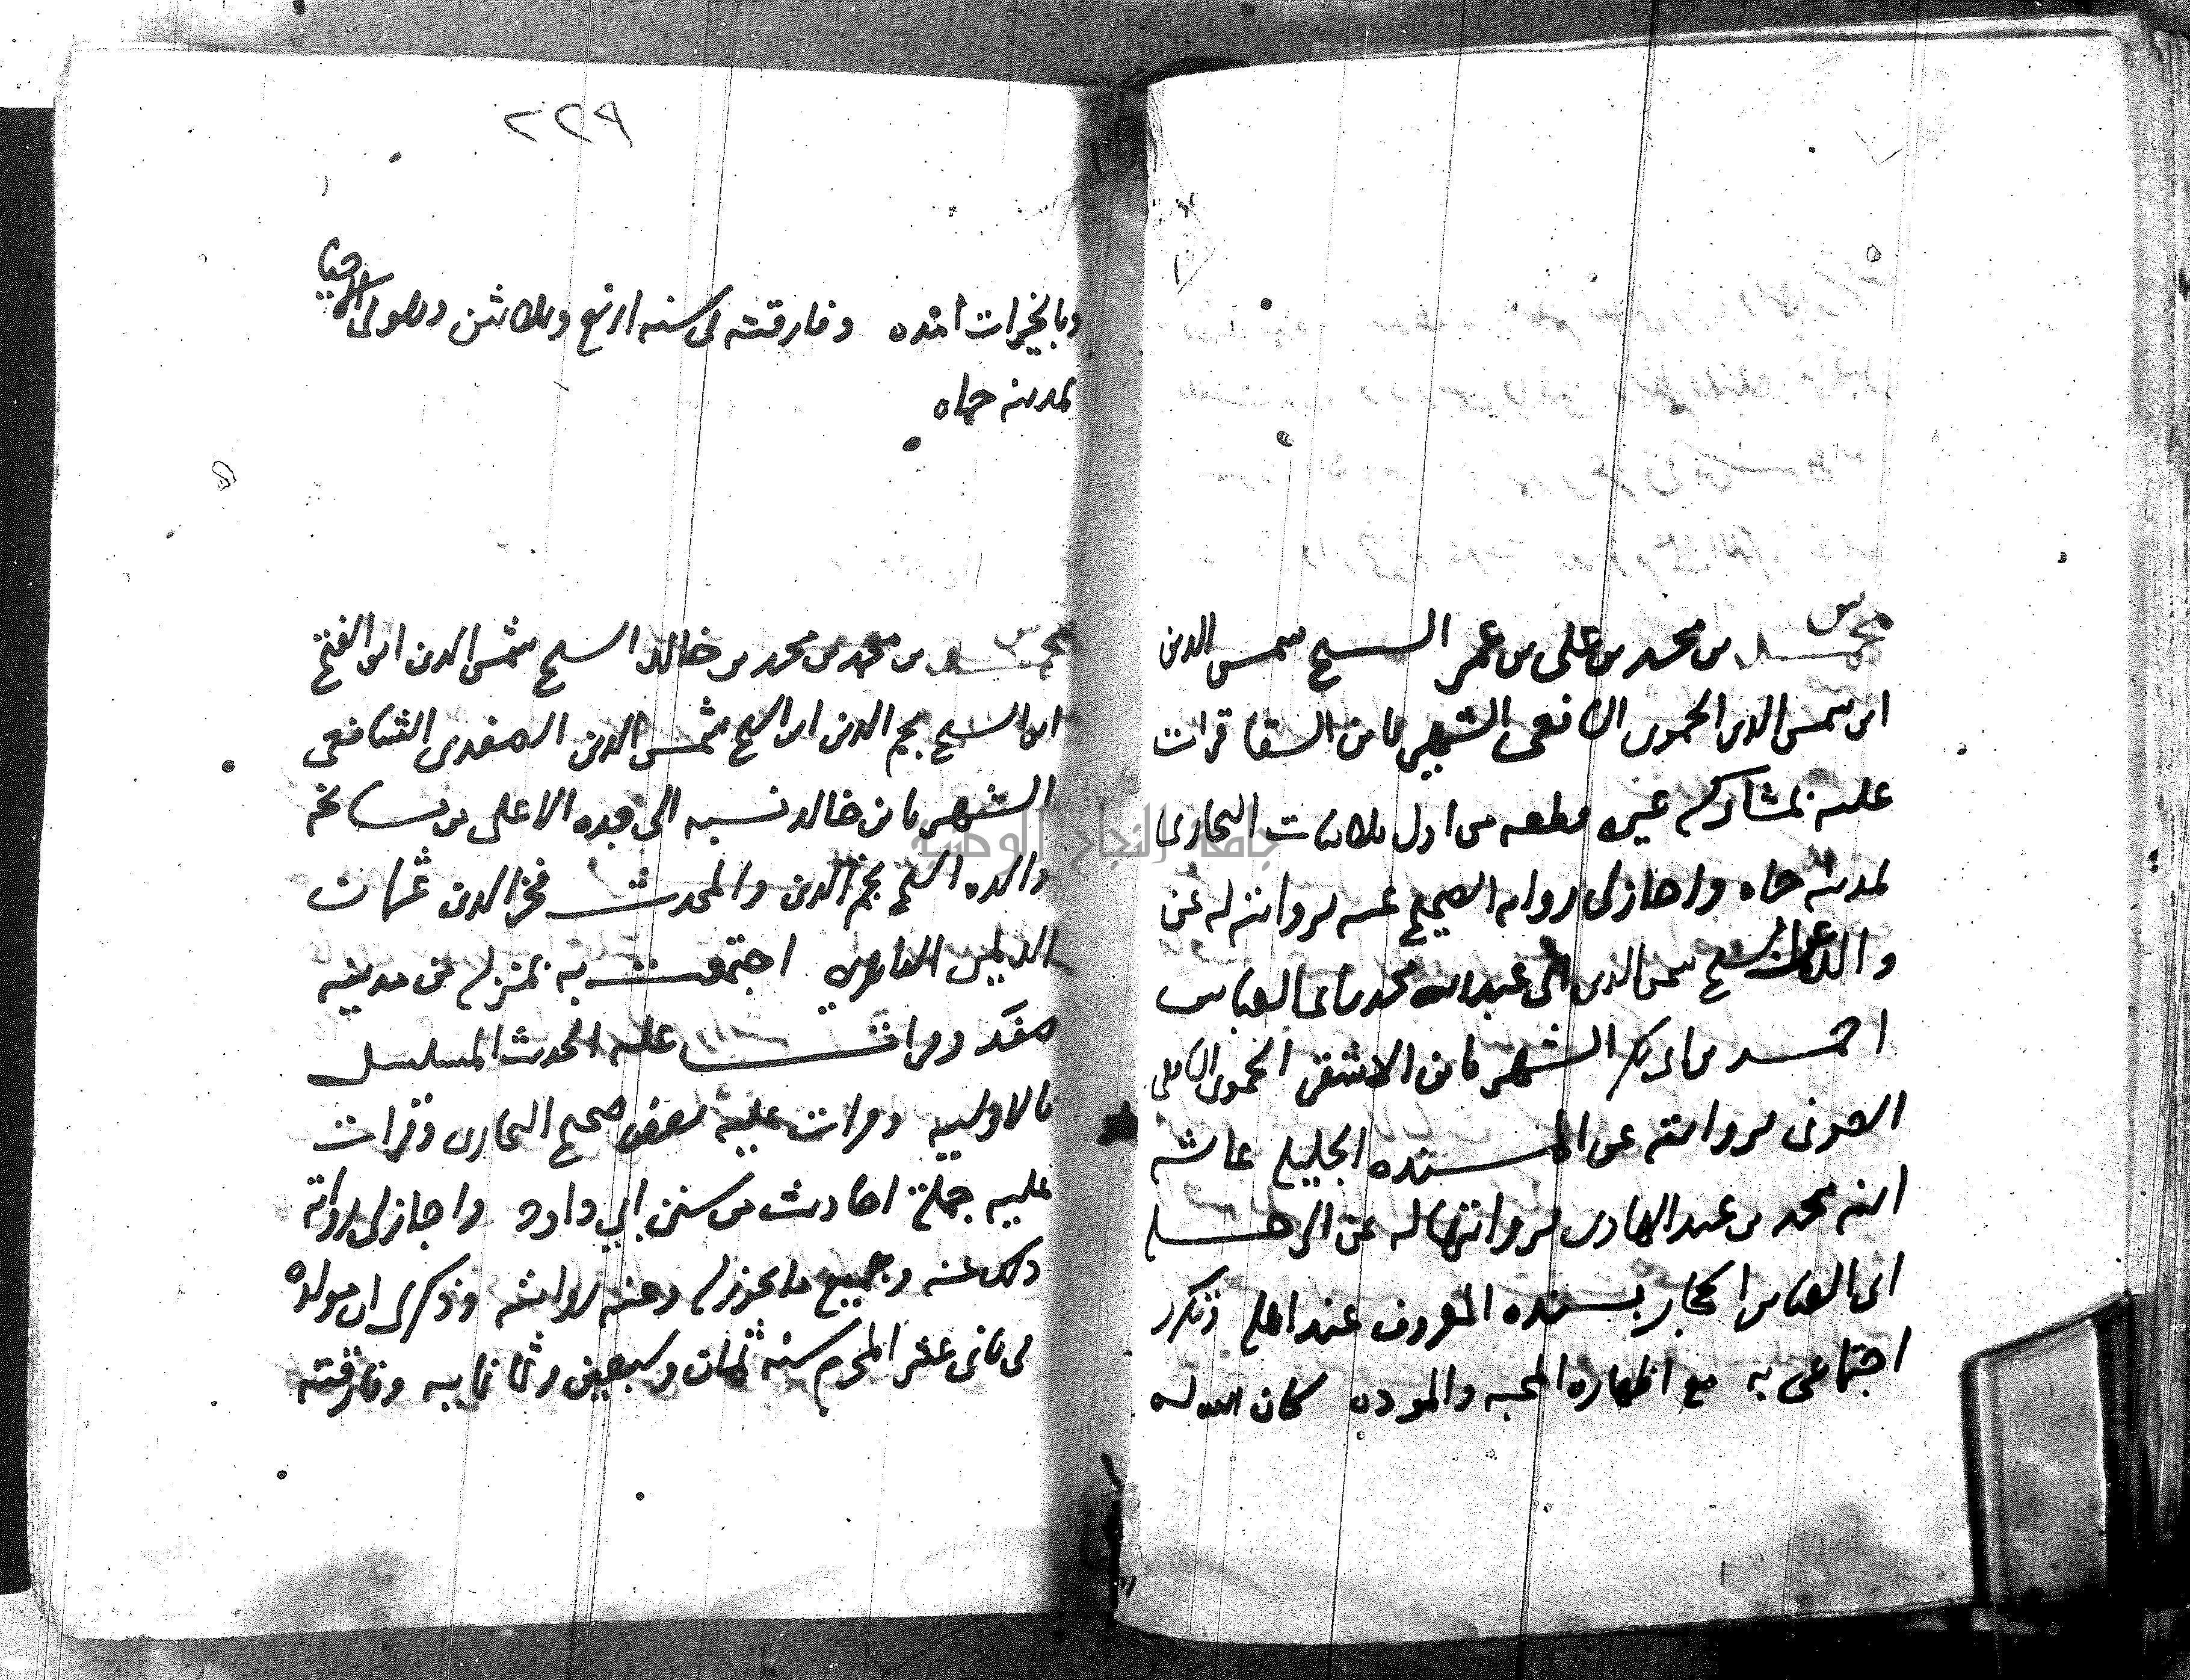 محمد بن محمد بن علي بن عمر الشيخ شمس الدين
ابن شمس الدين الحموي الشافعي الشهير بابن السقا قرات
عليه بمشاركه غيري قطعه من اول ثلاثيات البخاري
بمدينة حماه واجاز لي روايه الصحيح عنه بروايته له عن
والده عن الشيخ شمس الدين ابي عبد الله محمد بن ابي العباس
احمد بن ابي بكر الشهير بابن الاشقر الحموي
الصوفي بروايته عن المسنده الجليله عائشه
ابنه محمد بن عبد الهادي بروايتها له عن الرحله
ابي العباس الحجار بسنده المعروف عند اهله وتكرر
اجتماعي به مع اظهاره المحبه والموده كان الله له
٢٢٩
وبالخيرات امده وفارقته في سنه اربع وثلاثين
بمدينه حماه
محمد بن محمد بن محمد بن خالد الشيخ شمس الدين ابو الفتح
ابن الشيخ نجم الدين ابن الشيخ شمس الدين الصفدي الشافعي
الشهير بابن خالد نسبه الى جده الاعلى من مشايخه
والده الشيخ نجم الدين والمحدث فخر الدين عثمان
الديمي القاهري اجتمعت به بمنزله من مدينه
صفد وقرات عليه الحديث المسلسل
بالاوليه وقرات عليه بعض صحيح البخاري وقرات
عليه جملة احاديث من سنن ابي داود واجاز لي روايه
ذلك عنه وجميع ما يجوز له وعنه روايته وذكر لي ان مولده
في ثاني عشر المحرم سنه ثمان وسبعين وثمانمايه وفارقته
جامعة النجاح الوطنية